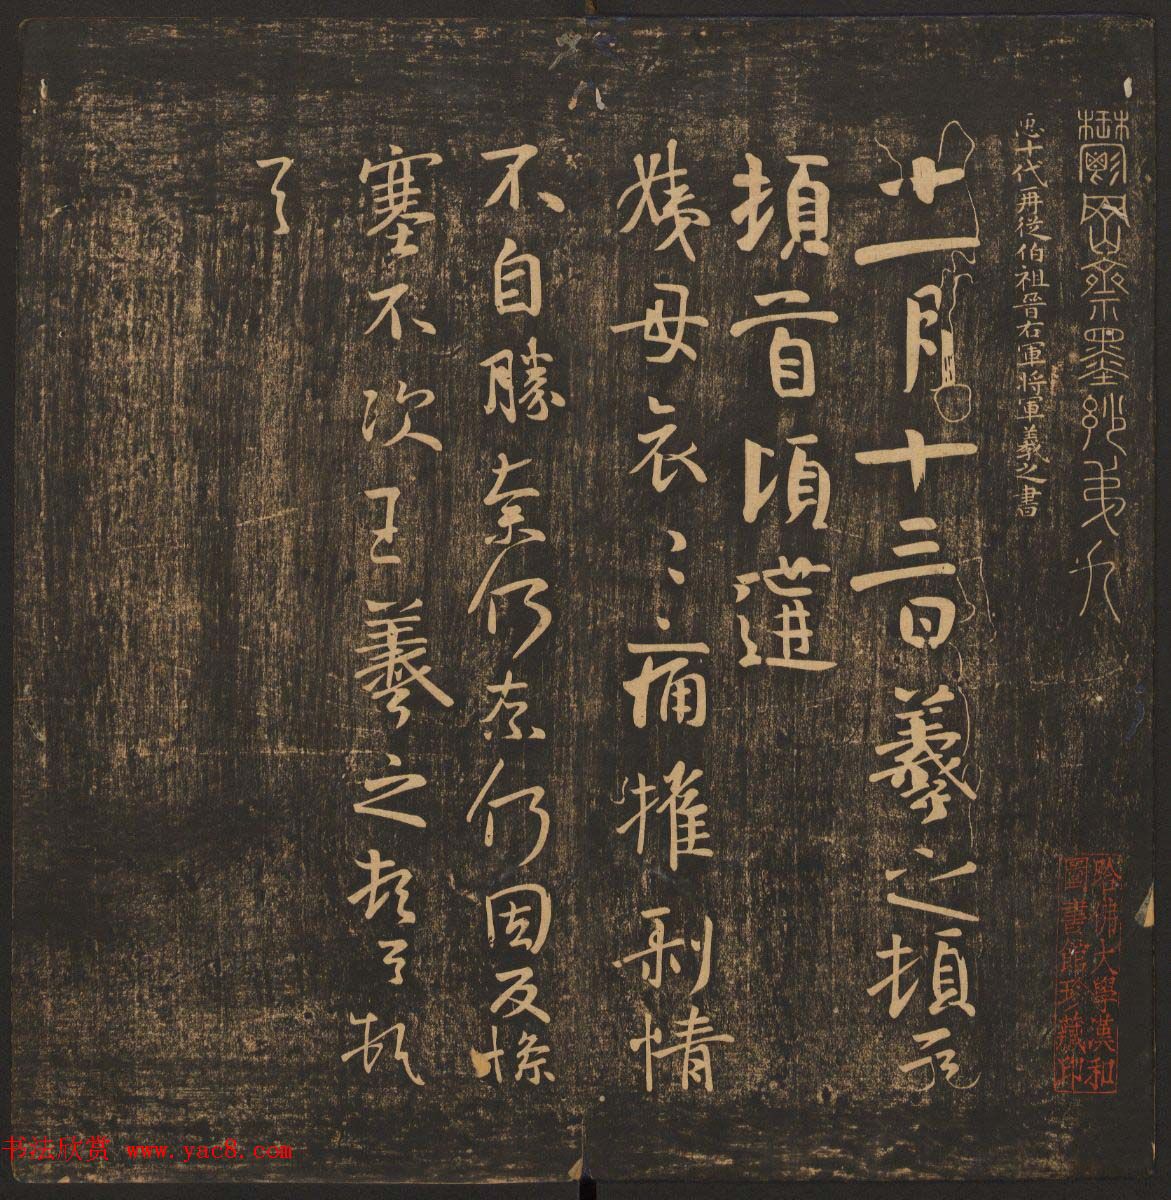 鬱岡齋墨妙第九
十代再從伯祖晉右軍將軍羲之書
十一月十三日羲之頓首
頓首頃遘
姨母哀哀痛摧剥情
不自勝奈何奈何因反慘
塞不次王羲之頓首頓
首
哈佛大學漢和
圖書館珍藏印
书法欣赏 www.yac8.com